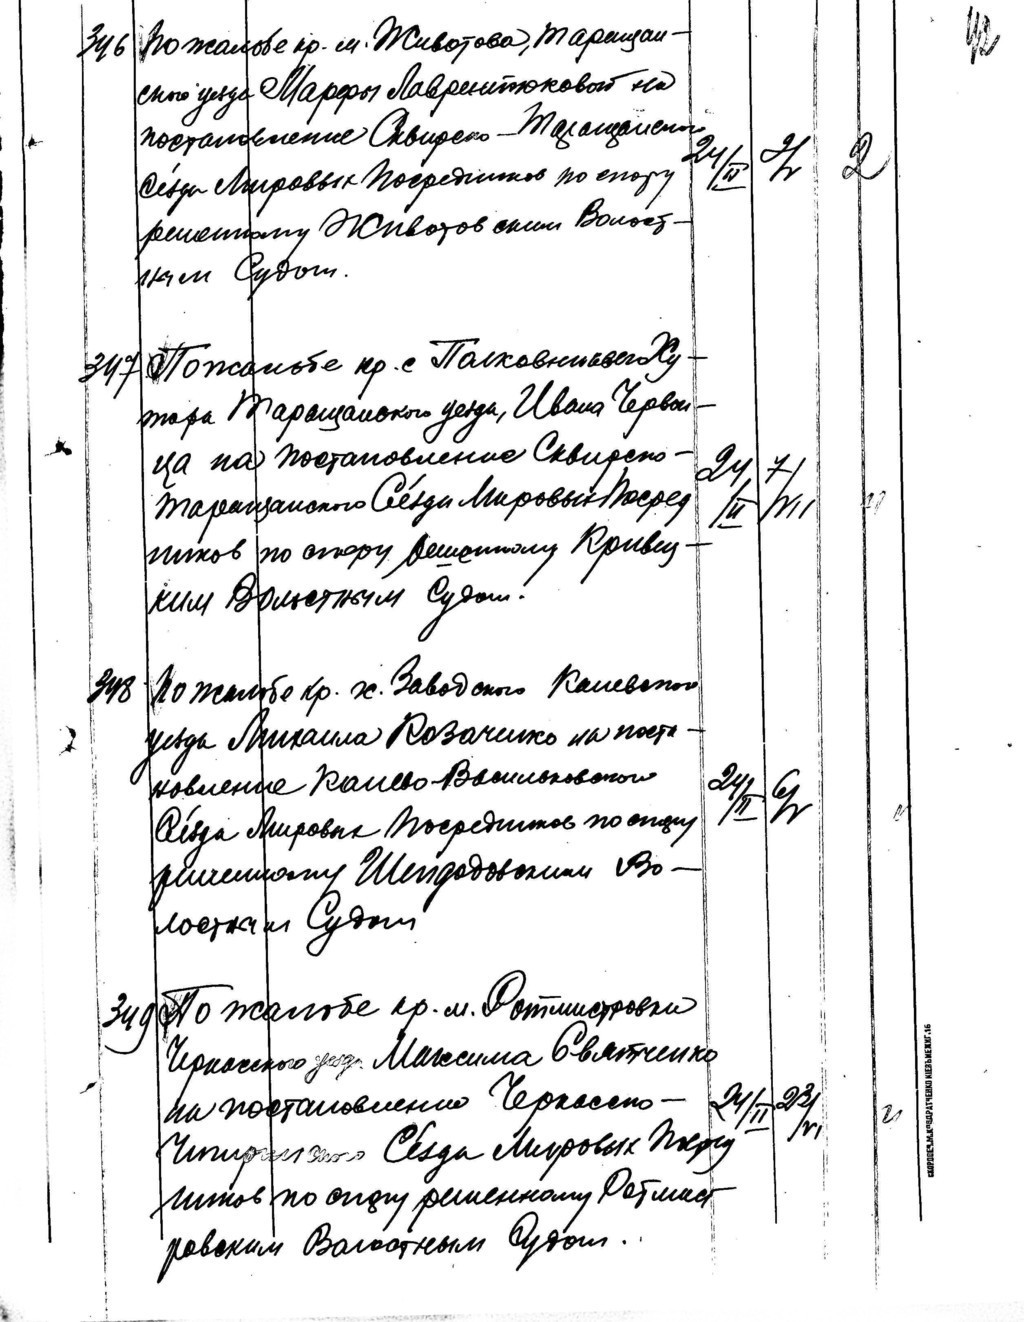 42
346 По жалобе кр. м. Животова, Таращан-
скаго уезда Марфы Лаврентюковой на
постановление Сквирско-Таращанскаго
Съезда Мировых Посредников по спору
решенному Животовским Волост-
ным Судом.
24/II
2
347 По жалобе кр. с Полковничьего Ху-
тора Таращанского уезда, Ивана Червон-
ца на постановление Сквирско-
Таращанского Съезда Мировых Посред
ников по спору решенному Кривец-
ким Волостным Судом.
24/II 7/VII
"
348 По жалобе кр. х. Заводского Каневского
уезда Михаила Козаченко на поста-
новление Канево-Васильковского
Съезда Мировых Посредников по спору
решенному Шендоровским Во-
лостным Судом
24/II 6/V
"
349 По жалобе кр. м. Ротмистровки
Черкасского уезда Максима Святченко
на постановление Черкасско-
Чигиринского Съезда Мировых Посред
ников по спору решенному Ротмист
ровским Волостным Судом.
24/II 23/VI
"